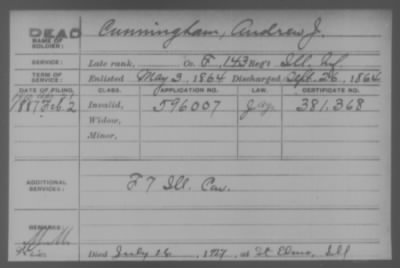 DEAD
NAME OF SOLDIER: Cunningham, Andrew J.
SERVICE: Late rank, Co. F, 143 Reg't Ill. Inf.
TERM OF SERVICE: Enlisted May 3, 1864 Discharged Sept. 26, 1864
DATE OF FILING. CLASS. APPLICATION NO. LAW. CERTIFICATE NO.
1887 Feb. 2 Invalid, 596007 381.368
Widow,
Minor,
ADDITIONAL SERVICES: F 7 Ill. Cav.
REMARKS:
Died July 16, 1917, at St Elmo, Ill